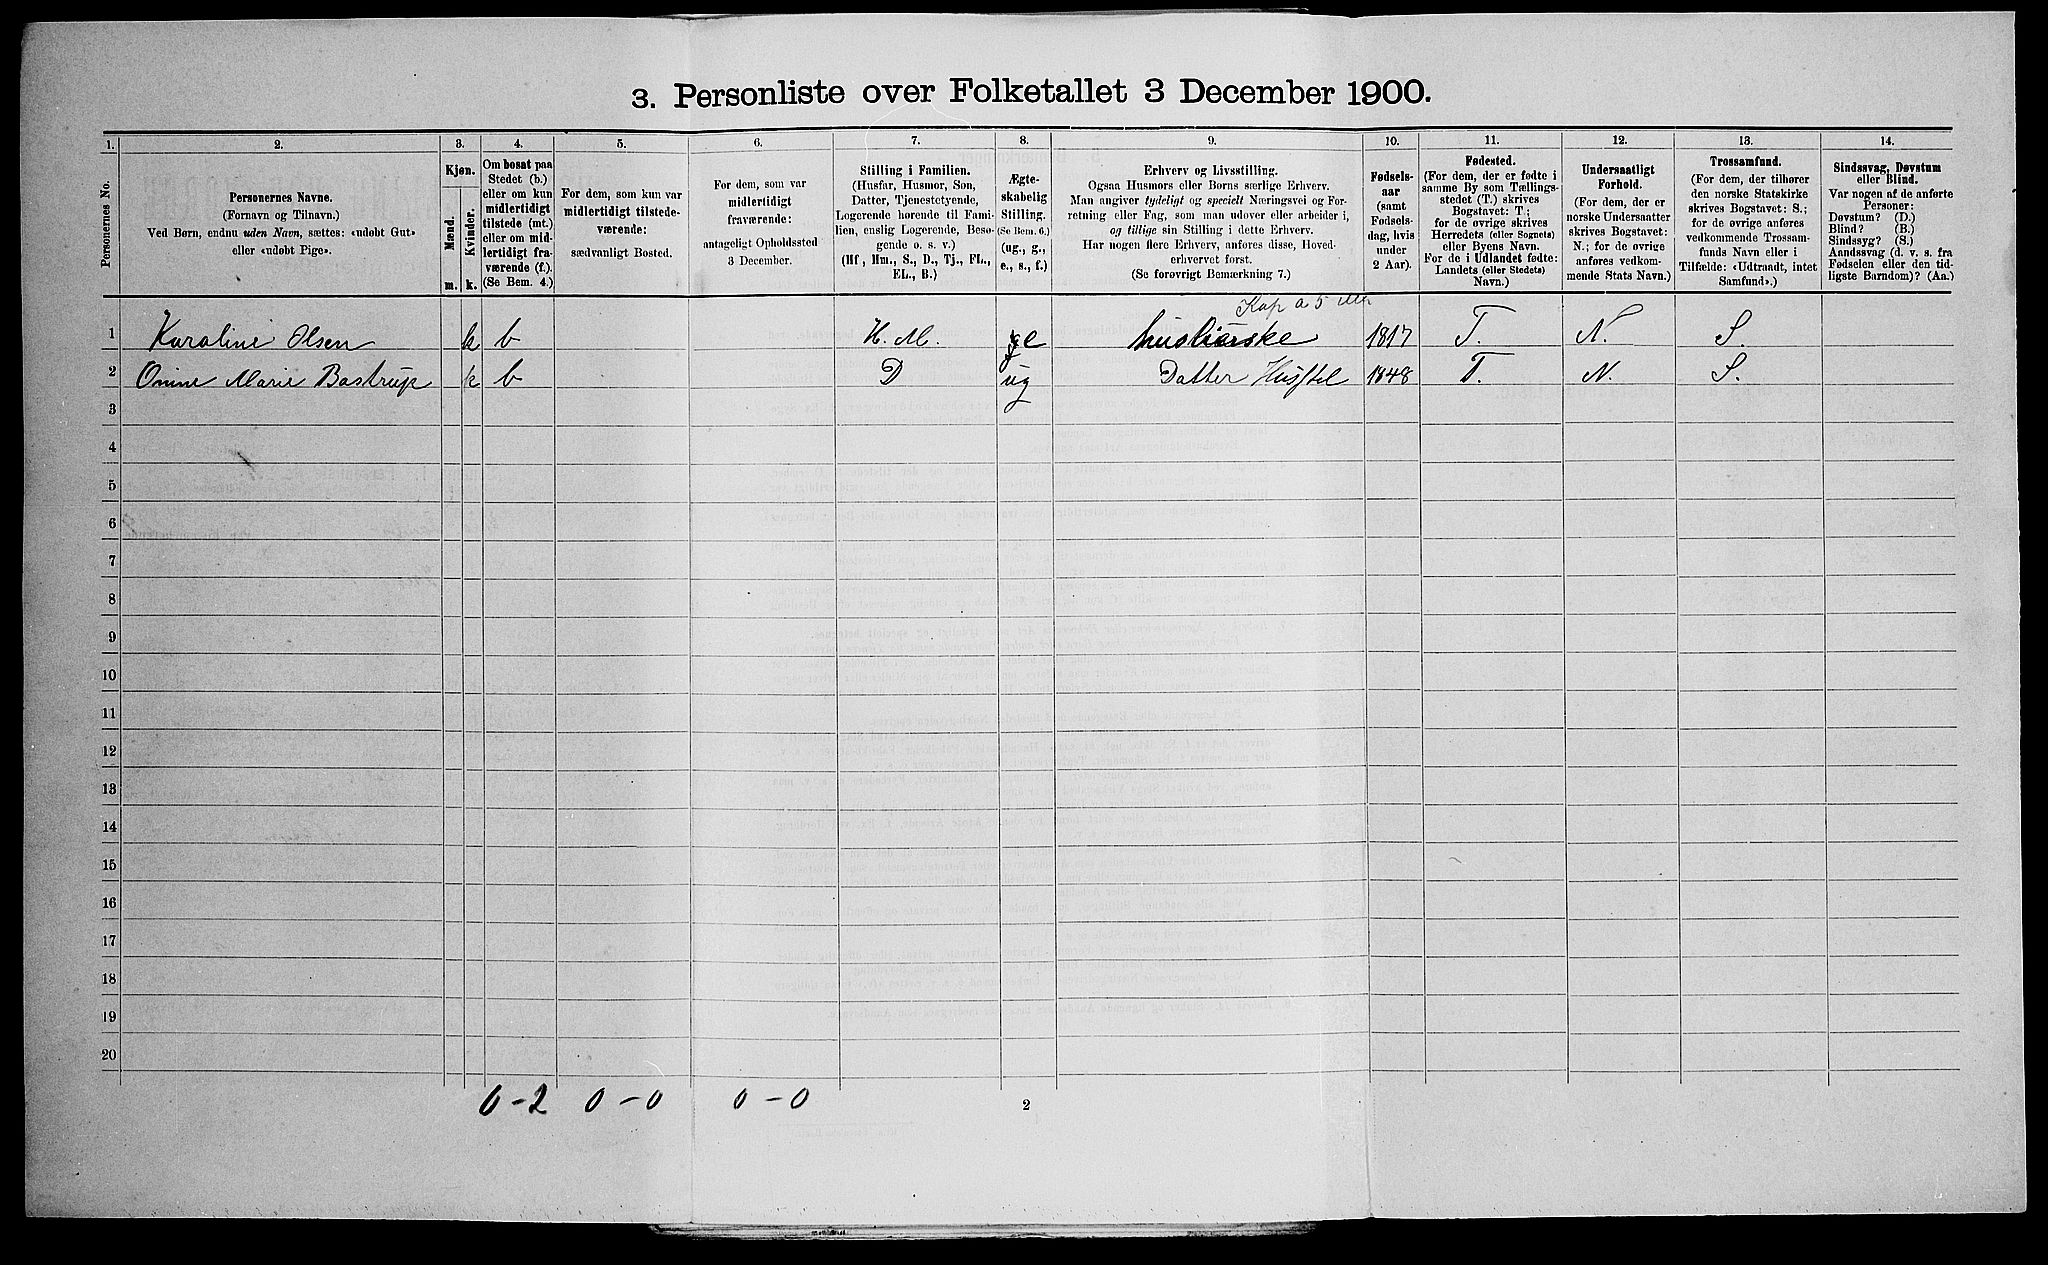 3. Personliste over Folketallet 3 December 1900.
1. 2. 3. 4. 5. 6. 7. 8. 9. 10. 11. 12. 13. 14.
Personernes No.
Personernes Navne.
(Fornavn og Tilnavn.)
Ved Børn, endnu uden Navn, sættes: «udøbt Gut»
eller «udøbt Pige».
Kjøn.
Mænd.
Kvinder.
m. k.
Om bosat paa
Stedet (b.)
eller om kun
midlertidigt
tilstede (mt.)
eller om mid-
lertidigt fra-
værende (f.).
(Se Bem. 4.)
For dem, som kun var
midlertidigt tilstede-
værende:
sædvanligt Bosted.
For dem, som var
midlertidigt
fraværende:
antageligt Opholdssted
3 December.
Stilling i Familien.
(Husfar, Husmor, Søn,
Datter, Tjenestetyende,
Logerende hørende til Fami-
lien, enslig Logerende, Besø-
gende o. s. v.)
(Hf, Hm., S., D., Tj., FL.,
EL., B.)
Ægte-
skabelig
Stilling.
(Se Bem. 6.)
(ug., g.,
e., s., f.)
Erhverv og Livsstilling.
Ogsaa Husmors eller Børns særlige Erhverv.
Man angiver tydeligt og specielt Næringsvei og For-
retning eller Fag, som man udover eller arbeider i,
og tillige sin Stilling i dette Erhverv.
Har nogen flere Erhverv, anføres disse, Hoved-
erhvervet først.
(Se forøvrigt Bemærkning 7.)
Fødsels-
aar
(samt
Fødsels-
dag, hvis
under
2 Aar).
Fødested.
(For dem, der er fødte i
samme By som Tællings-
stedet (T.) skrives
Bogstavet: T.;
for de øvrige skrives
Herredets (eller Sognets)
eller Byens Navn.
For de i Udlandet fødte:
Landets (eller Stedets)
Navn.)
Undersaatligt
Forhold.
(For dem, der er
norske Undersaatter
skrives Bogstavet:
N.; for de øvrige
anføres vedkom-
mende Stats Navn.)
Trossamfund.
(For dem, der tilhører
den norske Statskirke
skrives Bogstavet: S.;
for de øvrige anføres
vedkommende Trossam-
funds Navn eller i
Tilfælde: «Udtraadt, intet
Samfund».)
Sindssvag, Døvstum
eller Blind.
Var nogen af de anførte
Personer:
Døvstum? (D.)
Blind? (B.)
Sindssyg? (S.)
Aandssvag (d. v. s. fra
Fødselen eller den tid-
ligste Barndom)? (Aa.)
1 Karoline Olsen k b H. M. e 1817 T. N. S.
2 Onine Marie Bastrup k b D ug Datter Husstel 1848 T. N. S.
3
4
5
6
7
8
9
10
11
12
13
14
15
16
17
18
19
20
0-2 0-0 0-0
2